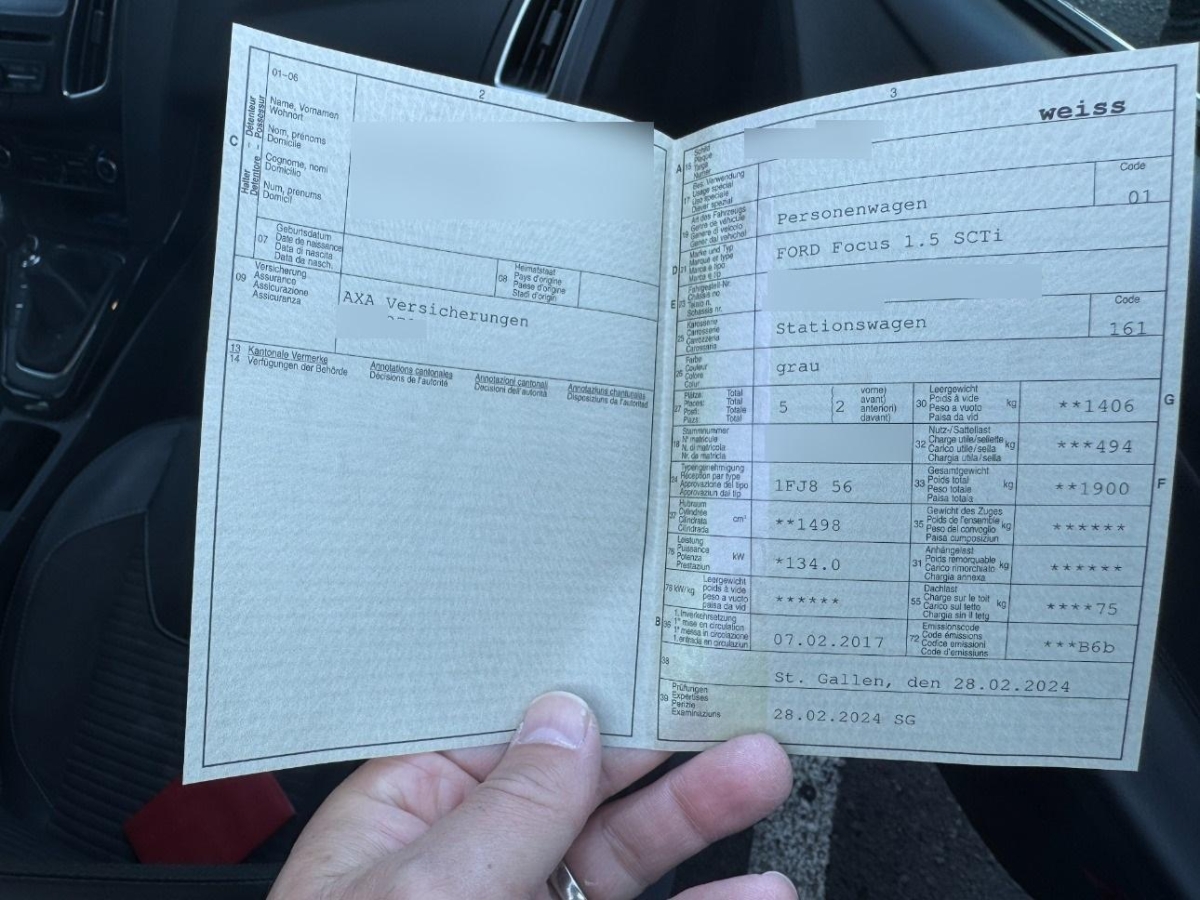 2
01-06
C
Halter - Détenteur
Detentore - Possessur
Name, Vornamen
Wohnort
Nom, prénoms
Domicile
Cognome, nomi
Domicilio
Num, prenums
Domicil
07
Geburtsdatum
Date de naissance
Data di nascita
Data da nasch.
08
Heimatstaat
Pays d'origine
Paese d'origine
Stadi d'origin
09
Versicherung
Assurance
Assicurazione
Assicuranza
AXA Versicherungen
13
14
Kantonale Vermerke
Verfügungen der Behörde
Annotations cantonales
Décisions de l'autorité
Annotazioni cantonali
Decisioni dell'autorità
Annotaziuns chantunalas
Disposiziuns da l'autoritad
3
weiss
A
15
Schild
Plaque
Targa
Numer
17
Bes. Verwendung
Usage spécial
Uso speciale
Diever spezial
Code
19
Art des Fahrzeugs
Genre de véhicule
Genere di veicolo
Gener dal vehichel
Personenwagen
01
D
21
Marke und Typ
Marque et type
Marca e tipo
Marca e tip
FORD Focus 1.5 SCTi
E
23
Fahrgestell-Nr.
Châssis no
Telaio n.
Schassis nr.
25
Karosserie
Carrosserie
Carrozzeria
Carossaria
Stationswagen
Code
161
26
Farbe
Couleur
Colore
Calur
grau
27
Plätze: Total
Places: Total
Posti: Totale
Plazs: Total
5
(2
vorne)
avant)
anteriori)
davant)
30
Leergewicht
Poids à vide
Peso a vuoto
Paisa da vid
kg
**1406
G
18
Stammnummer
N° matricule
N. di matricola
Nr. da matricla
32
Nutz-/Sattellast
Charge utile/sellette
Carico utile/sella
Chargia utila/sella
kg
***494
24
Typengenehmigung
Réception par type
Approvazione del tipo
Approvaziun dal tip
1FJ8 56
33
Gesamtgewicht
Poids total
Peso totale
Paisa totala
kg
**1900
F
37
Hubraum
Cylindrée
Cilindrata
Cilindrada
cm³
**1498
35
Gewicht des Zuges
Poids de l'ensemble
Peso del convoglio
Paisa cumposiziun
kg
******
76
Leistung
Puissance
Potenza
Prestaziun
kW
*134.0
31
Anhängelast
Poids remorquable
Carico rimorchiato
Chargia annexa
kg
******
78 kW/kg
Leergewicht
poids à vide
peso a vuoto
paisa da vid
******
55
Dachlast
Charge sur le toit
Carico sul tetto
Chargia sin il tetg
kg
****75
B
36
1. Inverkehrsetzung
1re mise en circulation
1a messa in circolazione
1. entrada en circulaziun
07.02.2017
72
Emissionscode
Code émissions
Codice emissioni
Code d'emissiuns
***B6b
38
St. Gallen, den 28.02.2024
39
Prüfungen
Expertises
Perizie
Examinaziuns
28.02.2024 SG